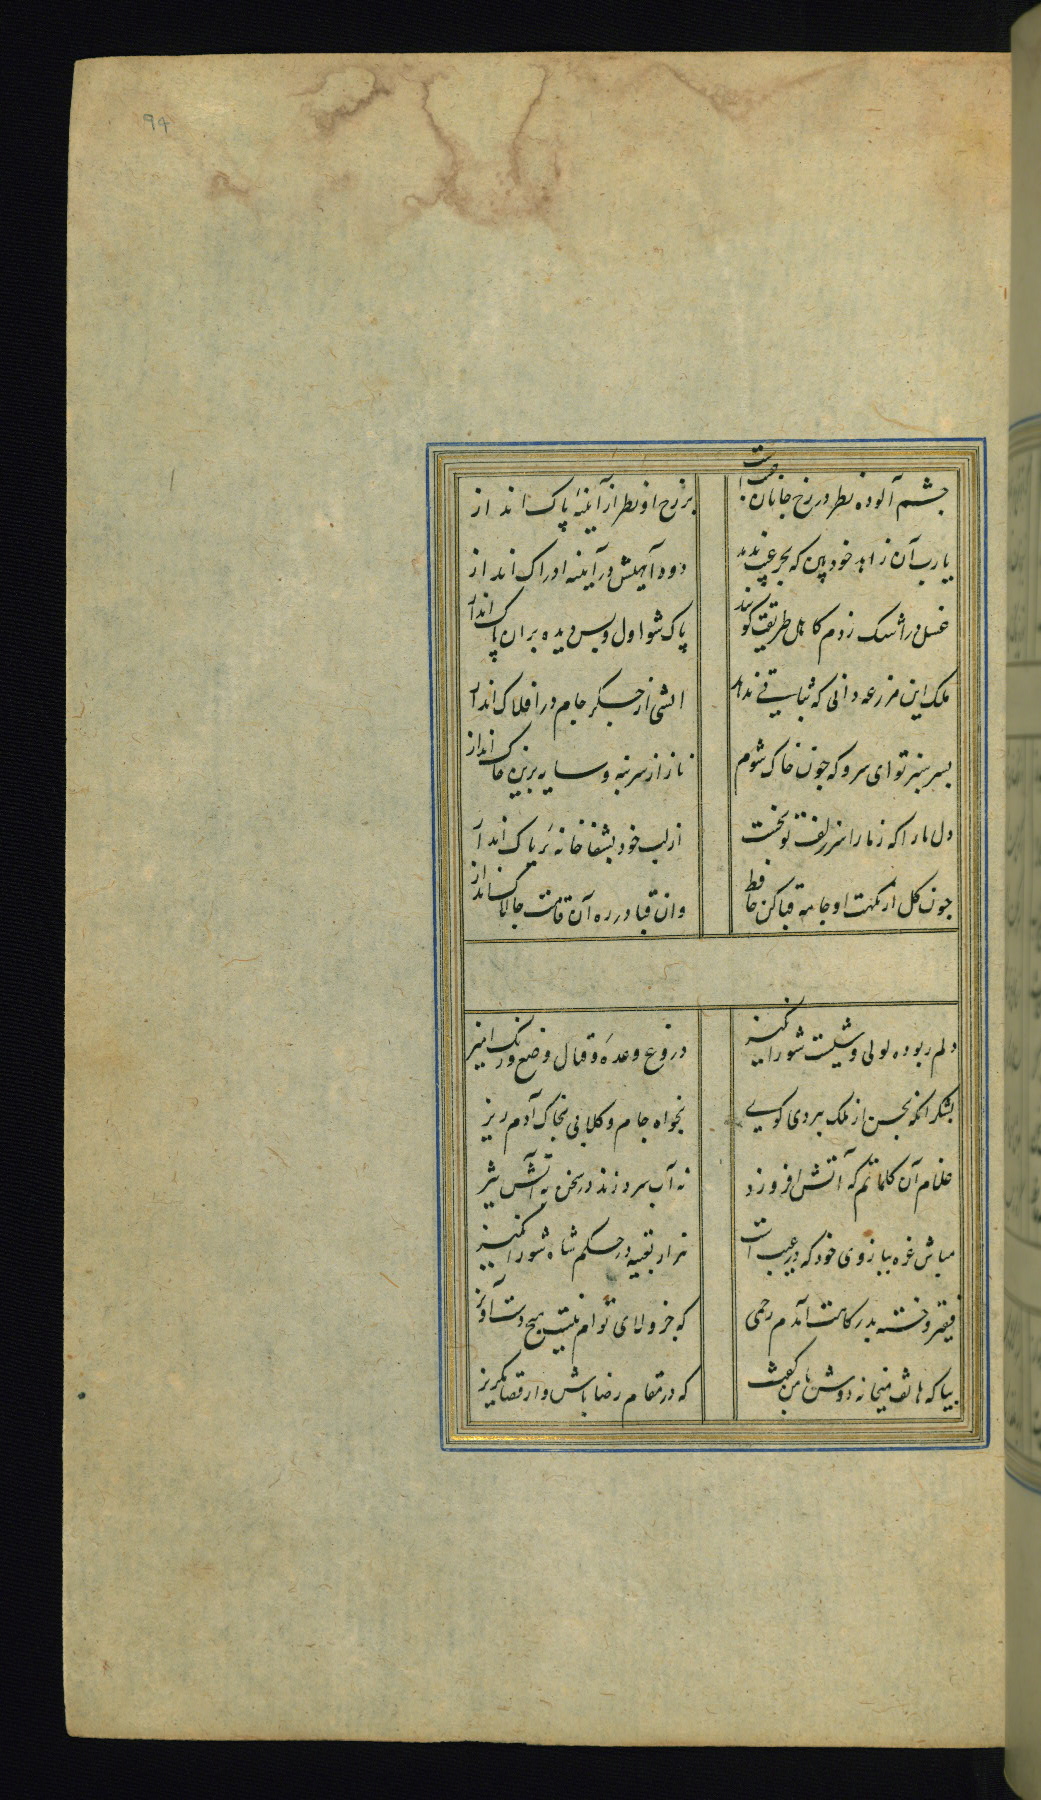 94
چشم آلوده نظر در رخ جانان
بر رخ او نظر از آینهٔ پاک انداز
یا رب آن زاهد خودبین که بجز عیب ندید
دود آهیش در آینه ادراک انداز
غسل در اشک زدم کاهل طریقت گویند
پاک شو اول و پس دیده بر ان پاک انداز
ملک این مزرعه دانی که ثباتی ندهد
اتشی از جگر جام در افلاک انداز
بسر سبز تو ای سرو که چون خاک شوم
ناز از سر بنه و سایه برین خاک انداز
دل ما را که ز مار سر زلف تو بخست
از لب خود بشفاخانه تریاک انداز
چون گل از نکهت او جامه قبا کن حافظ
وان قبا در ره آن قامت چالاک انداز
دلم ربوده لولی وشیست شورانگیز
دروغ وعده و قتال وضع و رنگ امیز
بشکر انکه بحسن از ملک ببردی گوی
بخواه جام و گلابی بخاک آدم ریز
غلام آن کلماتم که آتش افروزد
نه آب سرد زند در سخن به آتش تیز
مباش غره ببازوی خود که در است
هزار تعبیه در حکم شاه شورانگیز
فقیر و خسته بدرگاهت آمدم رحمی
که جز ولای توام نیست هیچ دست آویز
بیا که هاتف میخانه دوش با من گفت
که در مقام رضا باش و از قضا مگریز